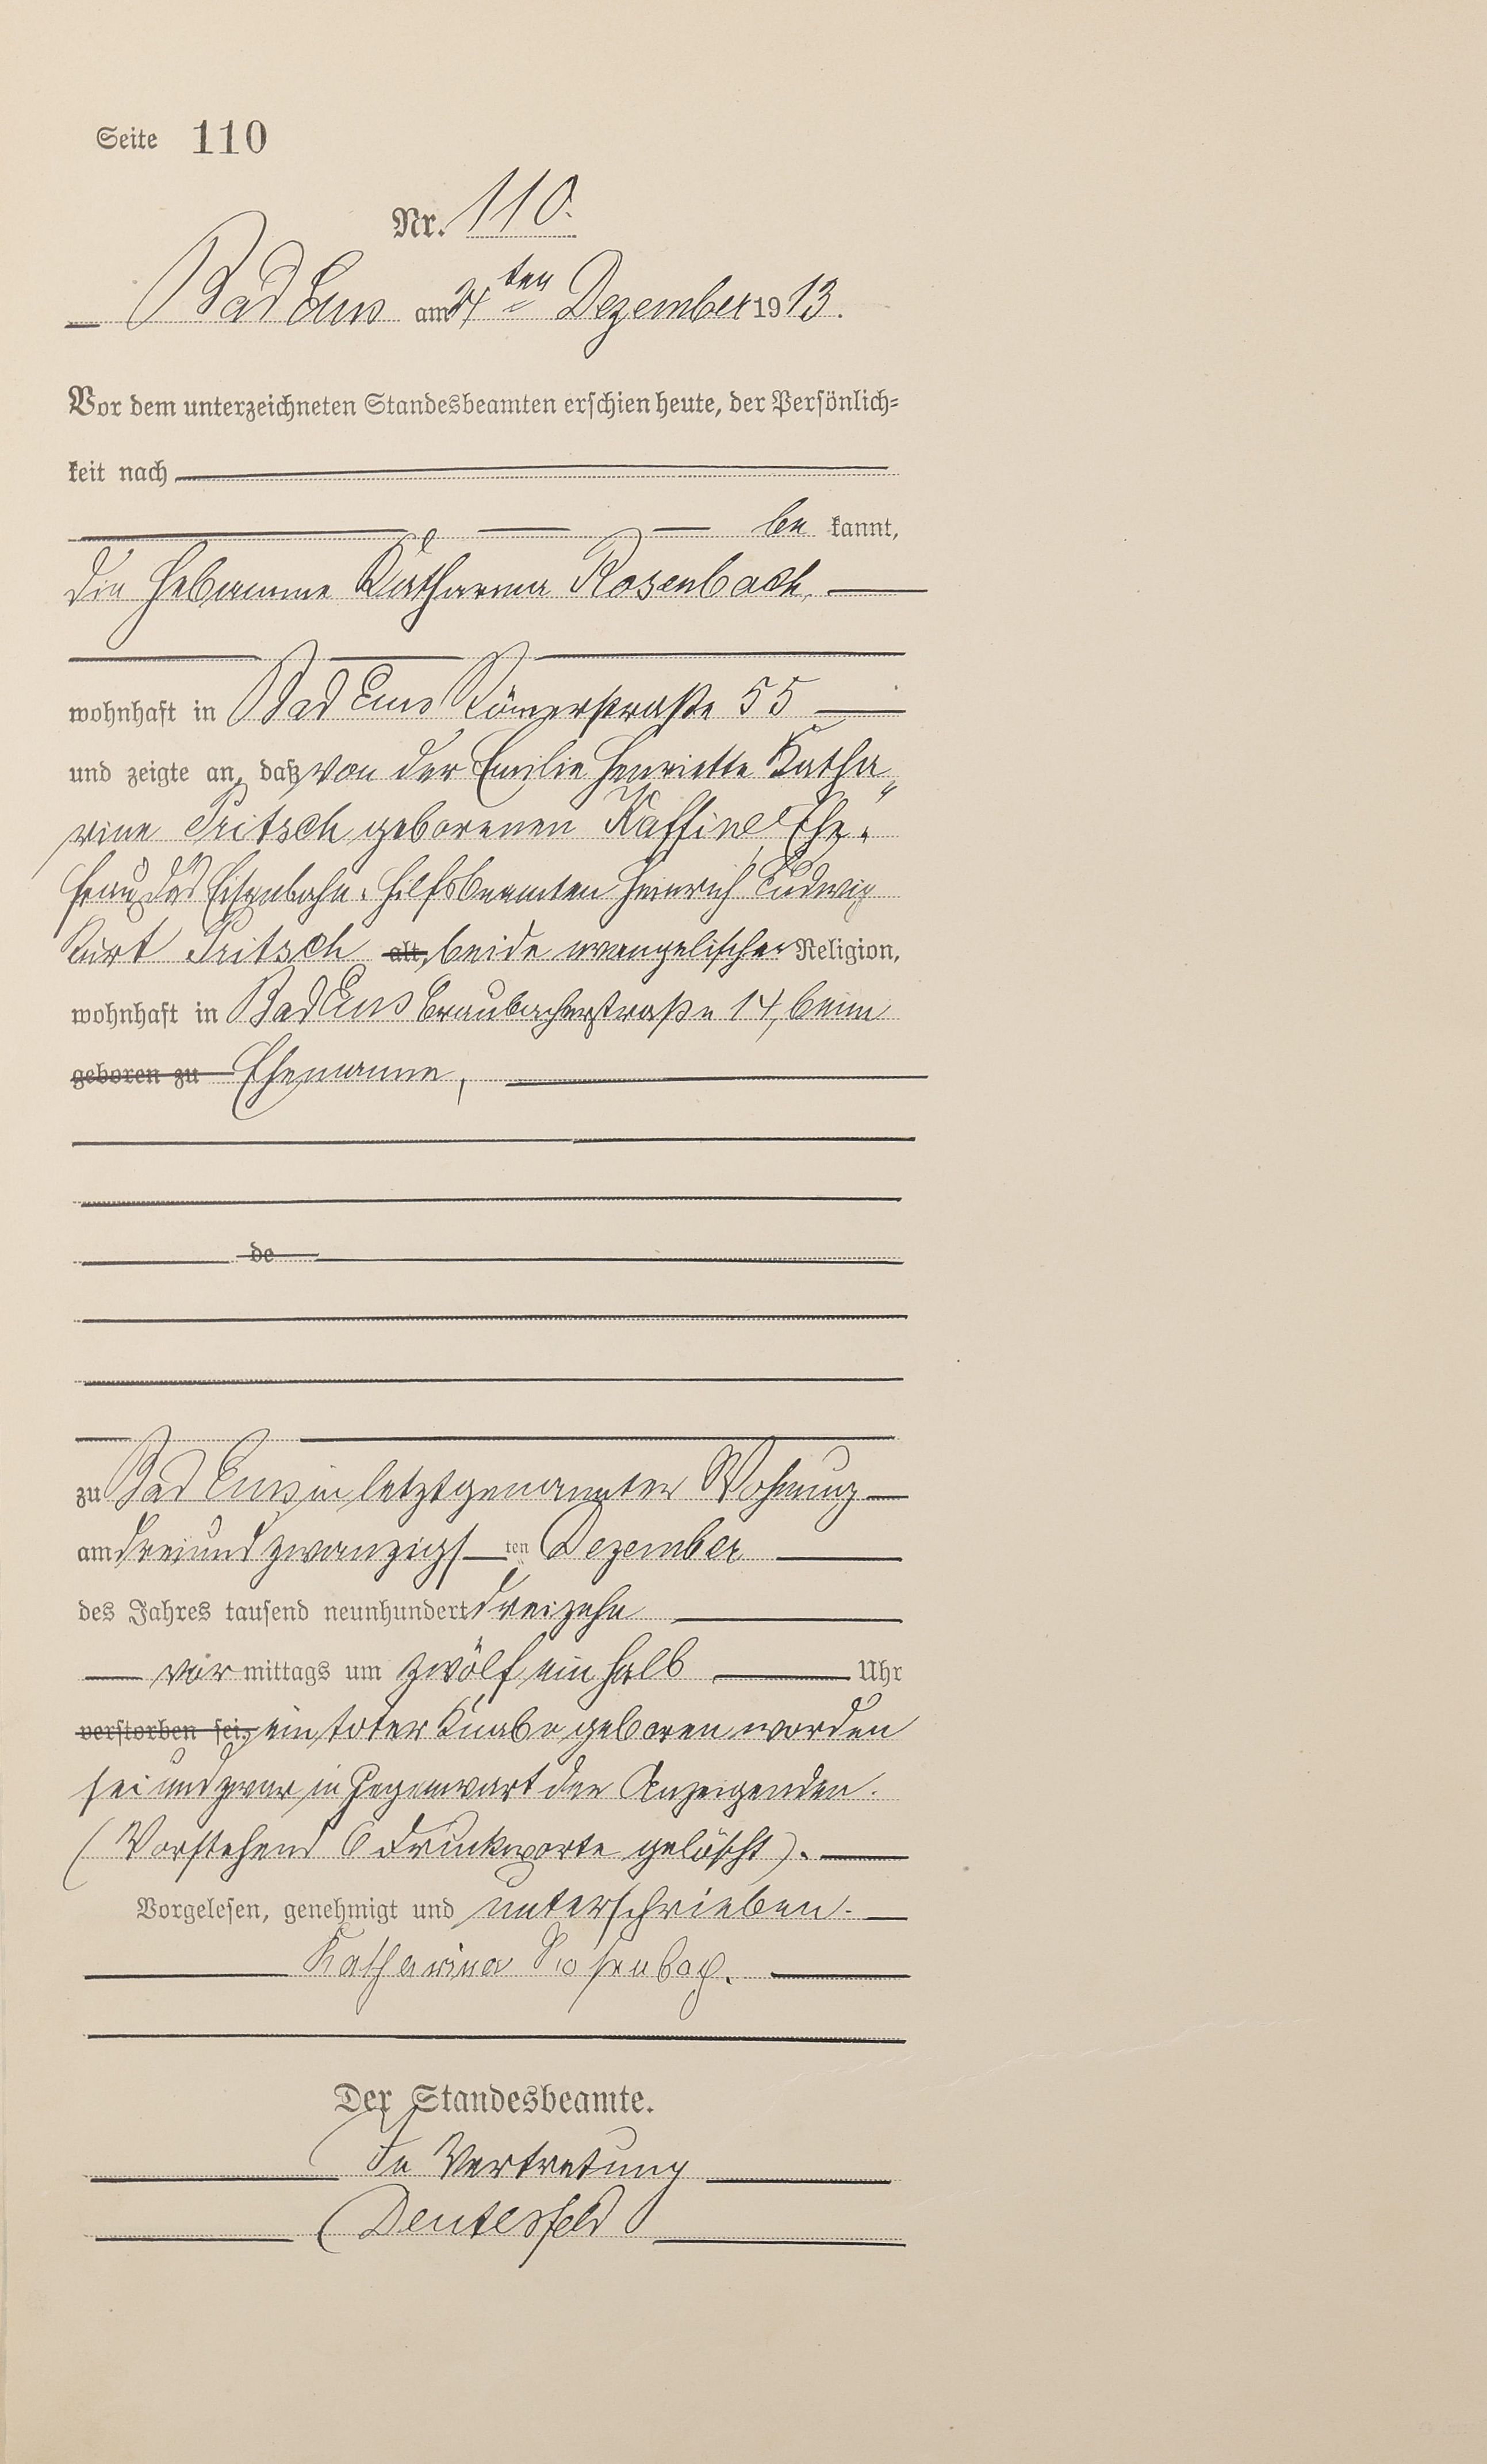 Seite 110
Nr. 110.
Bad Ems am 24ten Dezember 1913.
Vor dem unterzeichneten Standesbeamten erschien heute, der Persönlich=
keit nach
be kannt,
die Hebamme Katharina Rosenbach,
wohnhaft in Bad Ems Römerstraße 55
und zeigte an, daß von der Emilie Henriette Katha„
rine Fritsch geborenen Kaffine Ehe„
frau des Eisenbahn. Hilfsbeamten Heinrich Ludwig
Kurt Fritsch alt, beide evangelischer Religion,
wohnhaft in Bad Ems Braubacherstraße 14, beim
geboren zu Ehemanne,
de
zu Bad Ems in letztgenannter Wohnung
am dreiundzwanzigs ten Dezember
des Jahres tausend neunhundert dreizehn
vor mittags um zwölf ein halb Uhr
verstorben sei, ein toter Knabe geboren worden
sei und zwar in Gegenwart der Anzeigenden.
(Vorstehend 6 Druckworte gelöscht).
Vorgelesen, genehmigt und unterschrieben.
Katharina Rosenbach.
Der Standesbeamte.
In Vertretung
Deutesfeld